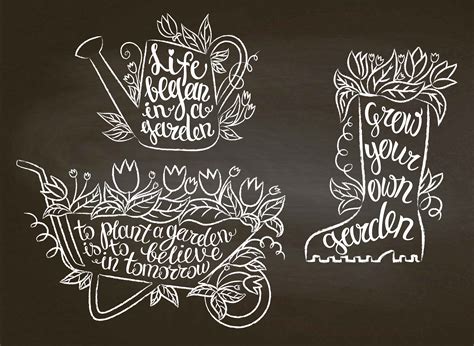 Life
began
in a
garden
Grow
your
own
garden
to plant a garden
is to believe
in tomorrow